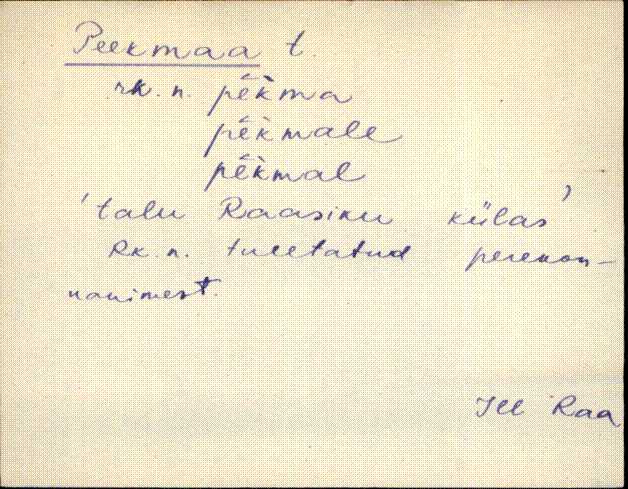 Peekmaa t.
rk. n. pēk̀ma
pēk̀male
pēk̀mal
'talu Raasiku külas'
Rk. n. tuletatud perekon-
nanimest.
Raa